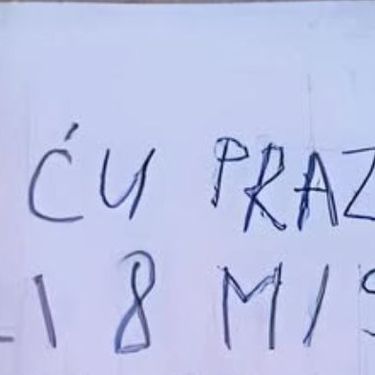 ĆU PRAZ
LI 8 MIS